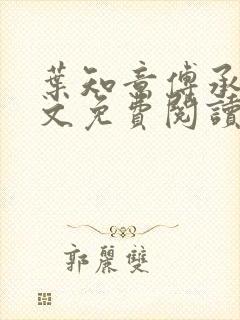 葉知音傅承
文免費閱讀
郭麗雙